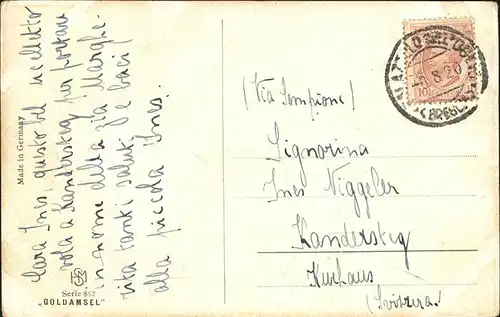 Cara Ines, questo bel uccelletto
vola a Kandersteg per portare
in nome della zia Marghe-
rita tanti saluti e baci
alla piccola Ines.
Made in Germany
Serie 862
"GOLDAMSEL"
(Via Sempione)
Signorina
Ines Niggeler
Kandersteg
Kurhaus
(Svizzera)
8.20